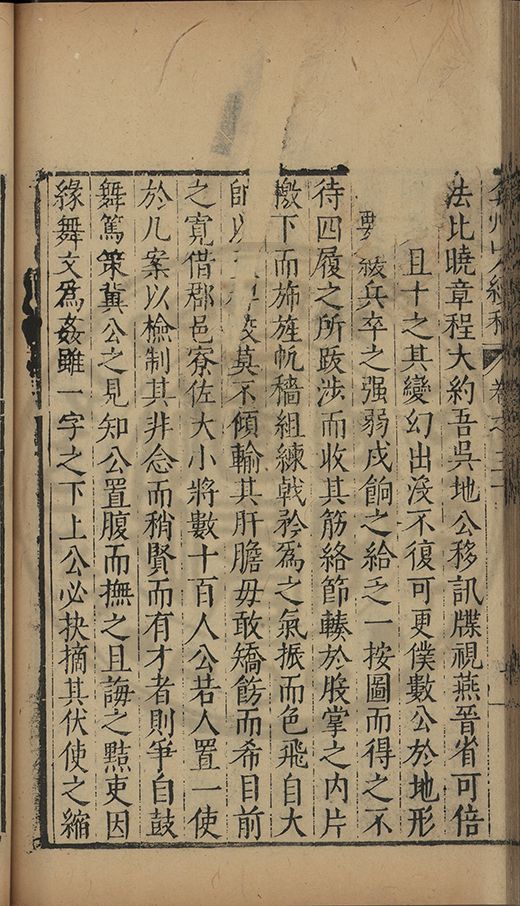 法比曉章程大約吾吳地公移訊牒視燕晉省可倍
且十之其變幻出沒不復可更僕數公於地形
兵卒之强弱戍餉之給乏一按圖而得之不
待四履之所跋涉而收其筋絡節輳於股掌之内片
檄下而斾旌帆檣組練戟矜爲之氣振而色飛自大
帥以莫不傾輸其肝膽毋敢矯餙而希目前
之寛借郡邑寮佐大小將數十百人公若人置一使
於几案以檢制其非念而稍賢而有才者則爭自鼓
舞篤策冀公之見知公置腹而撫之且誨之黠吏因
緣舞文爲姦雖一字之下上公必抉摘其伏使之縮